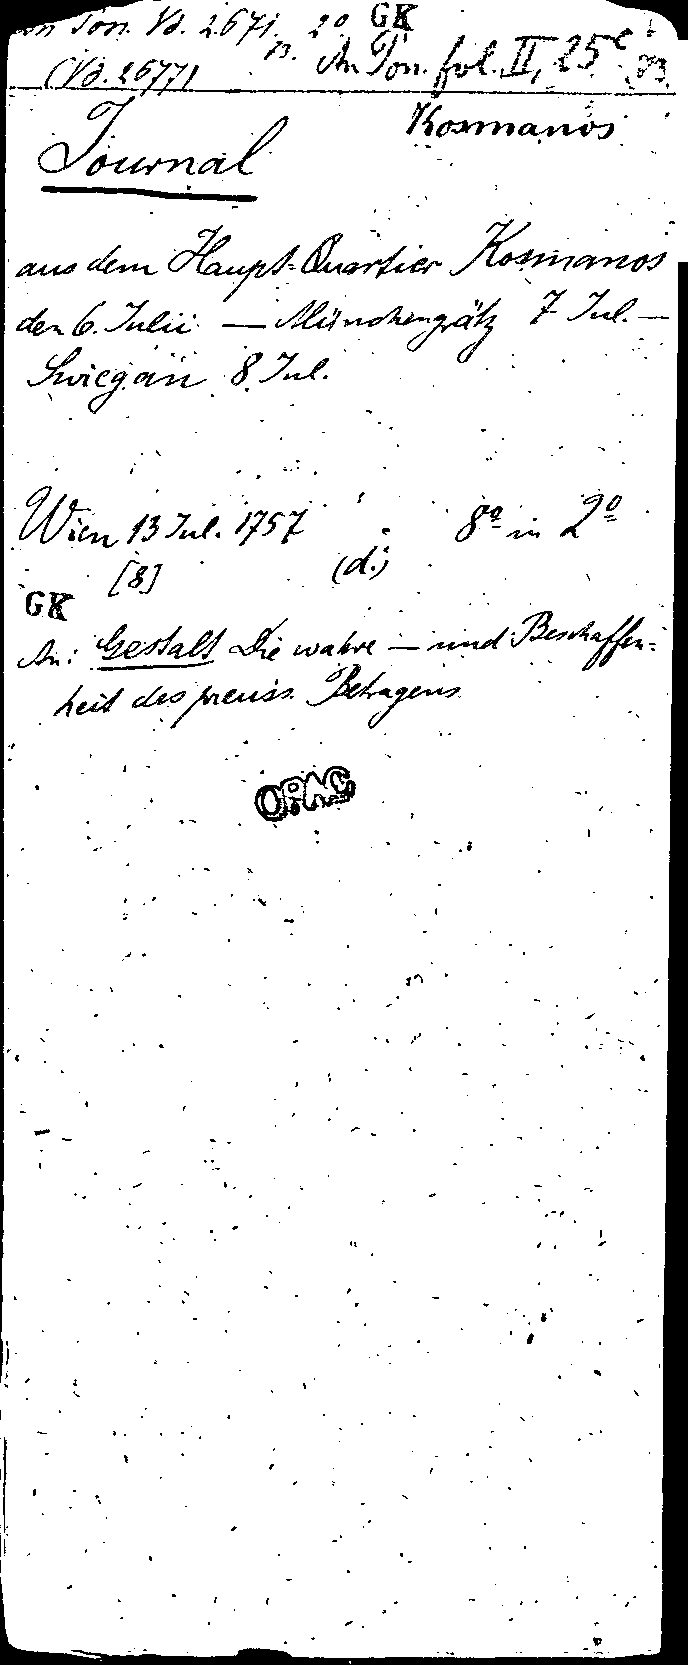 an Pon. Vd. 2671, 2º GK
(Vd. 2677) 13. An Pon. fol. II, 25
Kosmanos
Journal
aus dem Haupt-Quartier Kosmanos
den 6. Julii — Münchengrätz 7 Jul. —
Swiegan 8. Jul.
Wien 13 Jul. 1757 8º in 2º
[8] (d.)
GK
An: Gestalt Die wahre — und Beschaffen-
heit des preuss. Betragens
OPAC